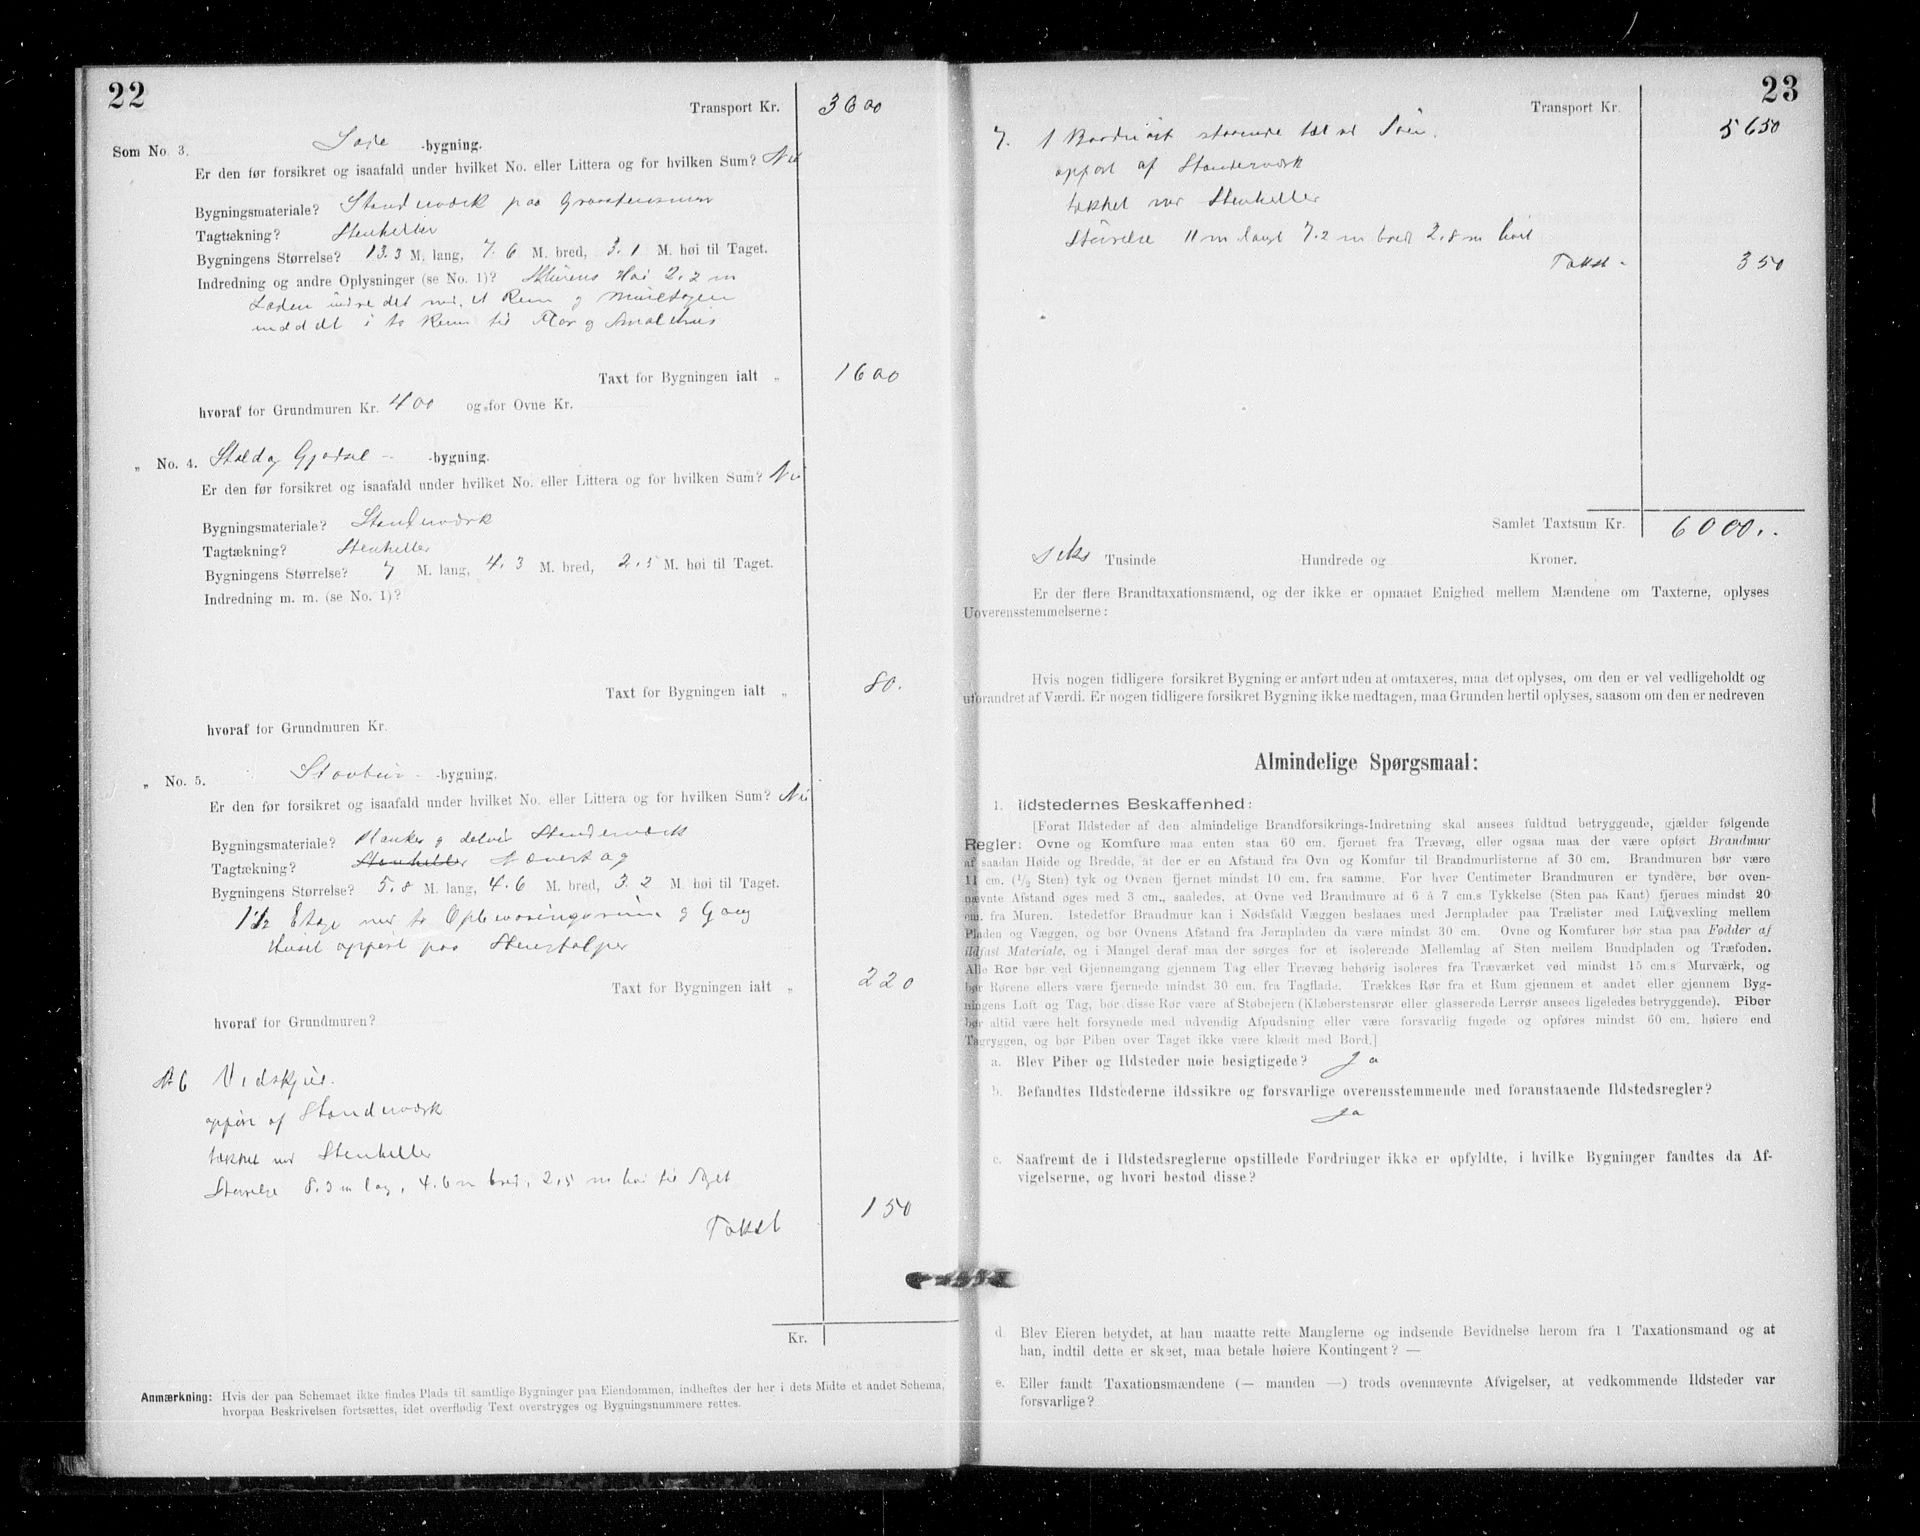 22
Transport Kr. 3600
Som No. 3. Lade -bygning.
Er den før forsikret og isaafald under hvilket No. eller Littera og for hvilken Sum? Nei
Bygningsmateriale? Standerværk paa Graastensmur
Tagtækning? Stenheller
Bygningens Størrelse? 13.3 M. lang, 7.6 M. bred, 3.1 M. høi til Taget.
Indredning og andre Oplysninger (se No. 1)? Murens Høi 2.2 m
Laden indredet med et Rum og
inddelt i to Rum til Flor og Smalehus
Taxt for Bygningen ialt „ 1600
hvoraf for Grundmuren Kr. 400 og for Ovne Kr.
„ No. 4. Stald og Gjødsel -bygning.
Er den før forsikret og isaafald under hvilket No. eller Littera og for hvilken Sum? Nei
Bygningsmateriale? Standerværk
Tagtækning? Stenheller
Bygningens Størrelse? 7 M. lang, 4.3 M. bred, 2.5 M. høi til Taget.
Indredning m. m. (se No. 1)?
Taxt for Bygningen ialt „ 80.
hvoraf for Grundmuren Kr.
„ No. 5. Stabur -bygning.
Er den før forsikret og isaafald under hvilket No. eller Littera og for hvilken Sum? Nei
Bygningsmateriale? Planker og delvis Standerværk
Tagtækning? Stenheller Nævertag
Bygningens Størrelse? 5.8 M. lang, 4.6 M. bred, 3.2 M. høi til Taget.
1½ Etage med to Opbevaringsrum og Gang
Huset opført paa Stenstolper
Taxt for Bygningen ialt „ 220
hvoraf for Grundmuren?
No 6 Vedskjul.
opført af Standerværk
tækket med Stenheller
Størrelse 8.3 m lang, 4.6 m bred, 2.5 m høi til Taget
Takst 150
Kr.
Anmærkning: Hvis der paa Schemaet ikke findes Plads til samtlige Bygninger paa Eiendommen, indheftes der her i dets Midte et andet Schema,
hvorpaa Beskrivelsen fortsættes, idet overflødig Text overstryges og Bygningsnummere rettes.
23
Transport Kr. 5650
7. 1 staaende ved Søen.
opført af Standerværk
tækket med Stenheller
Størrelse 11 m langt 7.2 m bredt 2.8 m høit
Takst - 350
Samlet Taxtsum Kr. 6000..
Seks Tusinde Hundrede og Kroner.
Er der flere Brandtaxationsmænd, og der ikke er opnaaet Enighed mellem Mændene om Taxterne, oplyses
Uoverensstemmelserne:
Hvis nogen tidligere forsikret Bygning er anført uden at omtaxeres, maa det oplyses, om den er vel vedligeholdt og
uforandret af Værdi. Er nogen tidligere forsikret Bygning ikke medtagen, maa Grunden hertil oplyses, saasom om den er nedreven
Almindelige Spørgsmaal:
1. Ildstedernes Beskaffenhed:
[Forat Ildsteder af den almindelige Brandforsikrings-Indretning skal ansees fuldtud betryggende, gjælder følgende
Regler: Ovne og Komfure maa enten staa 60 cm. fjernet fra Trævæg, eller ogsaa maa der være opført Brandmur
af saadan Høide og Bredde, at der er en Afstand fra Ovn og Komfur til Brandmurlisterne af 30 cm. Brandmuren bør være
11 cm. (½ Sten) tyk og Ovnen fjernet mindst 10 cm. fra samme. For hver Centimeter Brandmuren er tyndere, bør oven-
nævnte Afstand øges med 3 cm., saaledes, at Ovne ved Brandmure af 6 à 7 cm.s Tykkelse (Sten paa Kant) fjernes mindst 20
cm. fra Muren. Istedetfor Brandmur kan i Nødsfald Væggen beslaaes med Jernplader paa Trælister med Luftvexling mellem
Pladen og Væggen, og bør Ovnens Afstand fra Jernpladen da være mindst 30 cm. Ovne og Komfurer bør staa paa Fødder af
ildfast Materiale, og i Mangel deraf maa der sørges for et isolerende Mellemlag af Sten mellem Bundpladen og Træfoden.
Alle Rør bør ved Gjennemgang gjennem Tag eller Trævæg behørig isoleres fra Træværket ved mindst 15 cm.s Murværk, og
bør Rørene ellers være fjernede mindst 30 cm. fra Tagflade. Trækkes Rør fra et Rum gjennem et andet eller gjennem Byg-
ningens Loft og Tag, bør disse Rør være af Støbejern (Klæberstensrør eller glasserede Lerrør ansees ligeledes betryggende). Piber
bør altid være helt forsynede med udvendig Afpudsning eller være forsvarlig fugede og opføres mindst 60 cm. høiere end
Tagryggen, og bør Piben over Taget ikke være klædt med Bord.]
a. Blev Piber og Ildsteder nøie besigtigede? Ja
b. Befandtes Ildstederne ildssikre og forsvarlige overensstemmende med foranstaaende Ildstedsregler?
Ja
c. Saafremt de i Ildstedsreglerne opstillede Fordringer ikke er opfyldte, i hvilke Bygninger fandtes da Af-
vigelserne, og hvori bestod disse?
d. Blev Eieren betydet, at han maatte rette Manglerne og indsende Bevidnelse herom fra 1 Taxationsmand og at
han, indtil dette er skeet, maa betale høiere Kontingent? —
e. Eller fandt Taxationsmændene (— manden —) trods ovennævnte Afvigelser, at vedkommende Ildsteder var
forsvarlige?